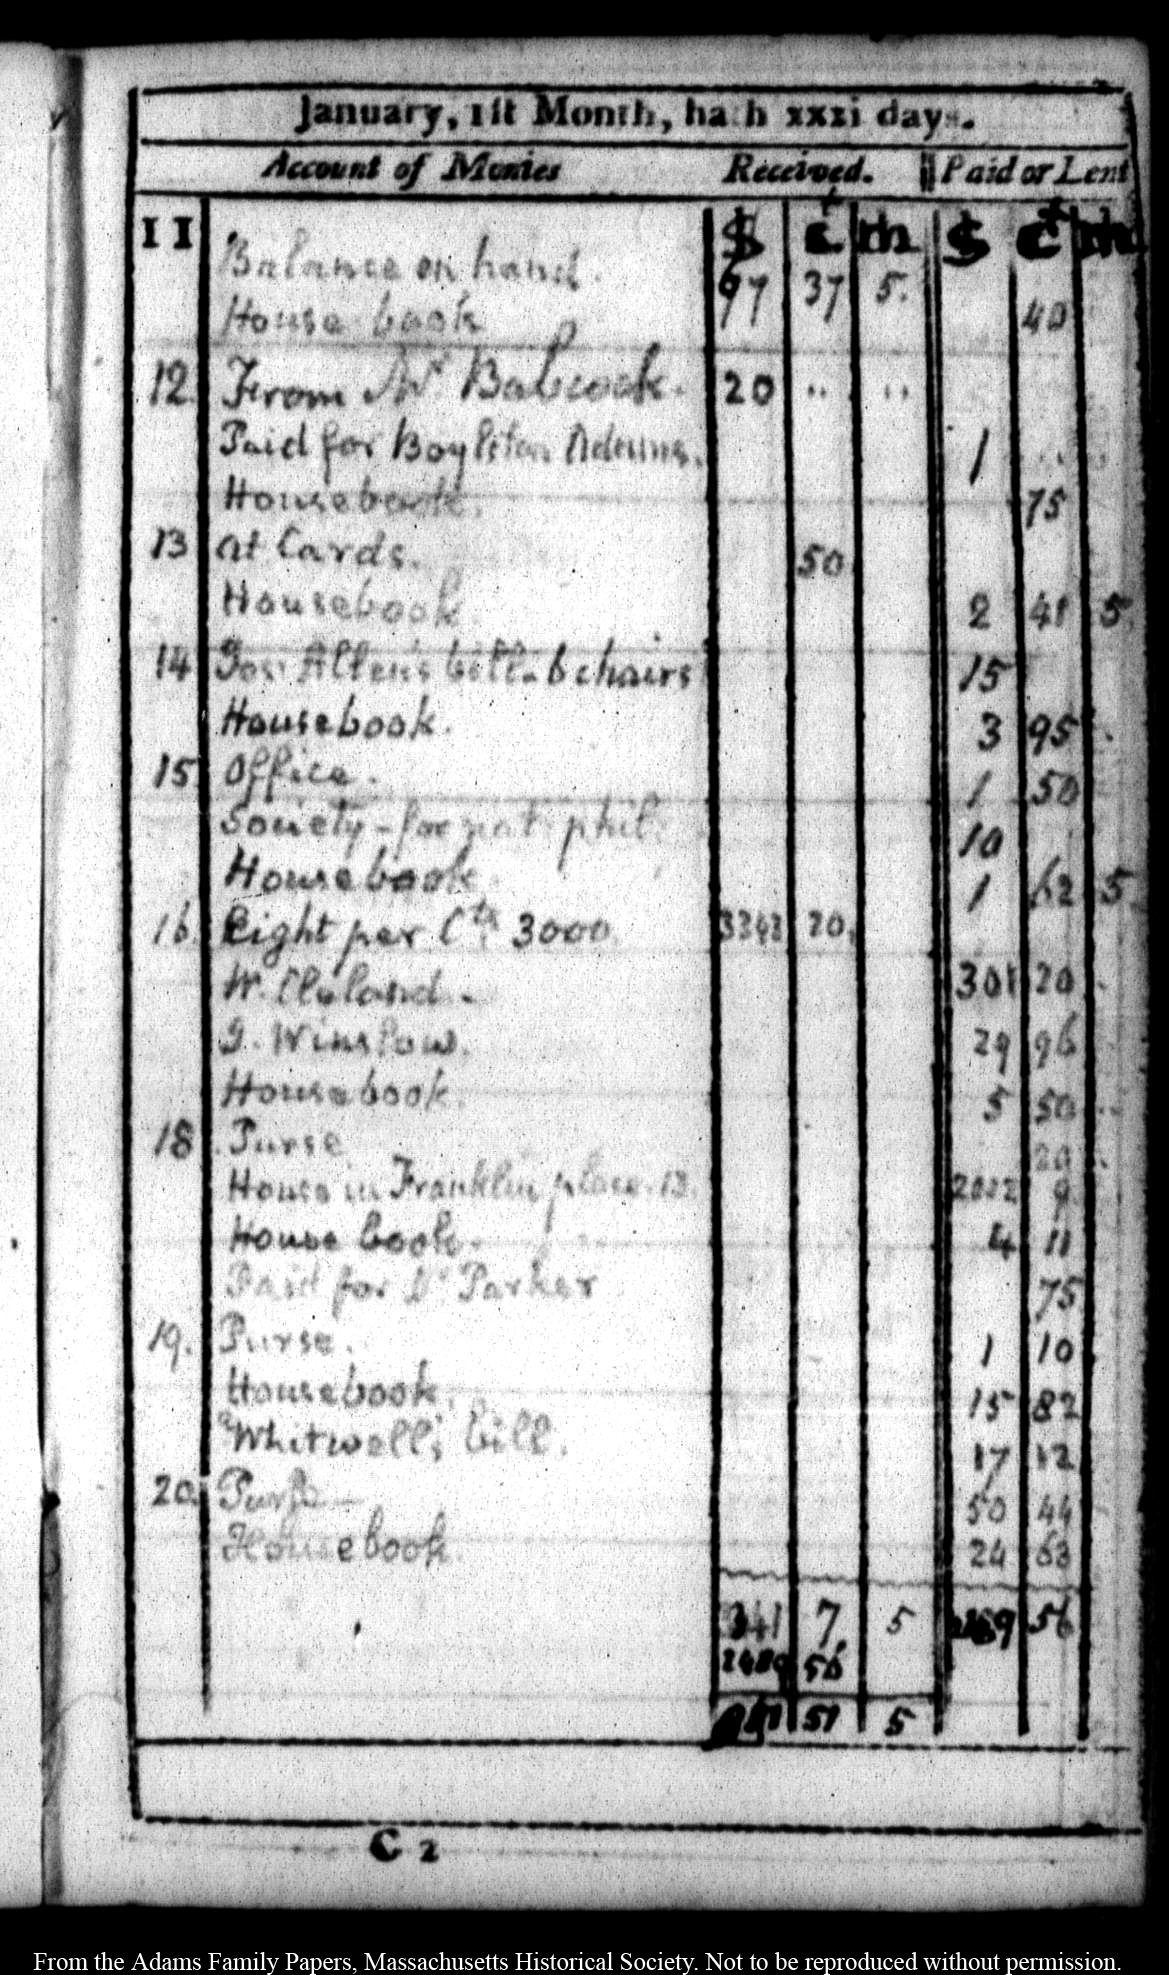 January, 1st Month, hath xxxi days.
Account of Monies Received. Paid or Lent
11 $ c m $ c m
Balance on hand. 77 37 5.
House book 40
12. From Mr Babcock. 20 .. ..
Paid for Boylston Adams. 1 .. ..
Housebook. 75
13 at Cards. 50
Housebook 2 41 5.
14 Jos: Allen's bill. 6 chairs 15
Housebook. 3 95
15. Office. 1 50
Society - for nat: phil: 10
Housebook 1 62 5.
16. Eight per Cts 3000. 20.
W. Clyland. 301 20
J. Winslow. 29 96
Housebook. 5 50
18. Purse 20
House in Franklin place. 13. 9
House book. 4 11
Paid for Dr Parker 75
19. Purse. 1 10
Housebook. 15 82
Whitwell's bill. 17 12
20. Purse 50 44
Housebook. 24 63
7. 5 56
56
51 5
C 2
From the Adams Family Papers, Massachusetts Historical Society. Not to be reproduced without permission.